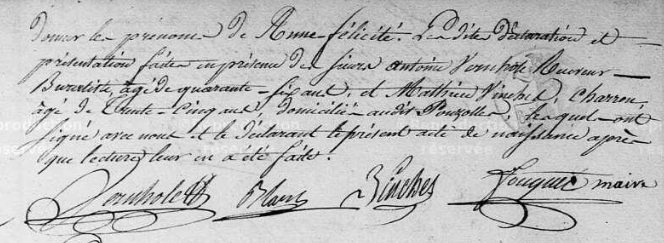 donner les prénoms de Anne-félicité. Les dites déclaration et
présentation faites en présence des sieurs antoine Vernhole Receveur
Buraliste, agé de quarante-six ans, et Mathieu Vinches, Charron,
agé de trente-cinq ans domiciliés audit Pouzolles, lesquels ont
signé avec nous et le déclarant le présent acte de naissance après
que lecture leur en a été faite.
Vernhole Vinches Fouquet maire